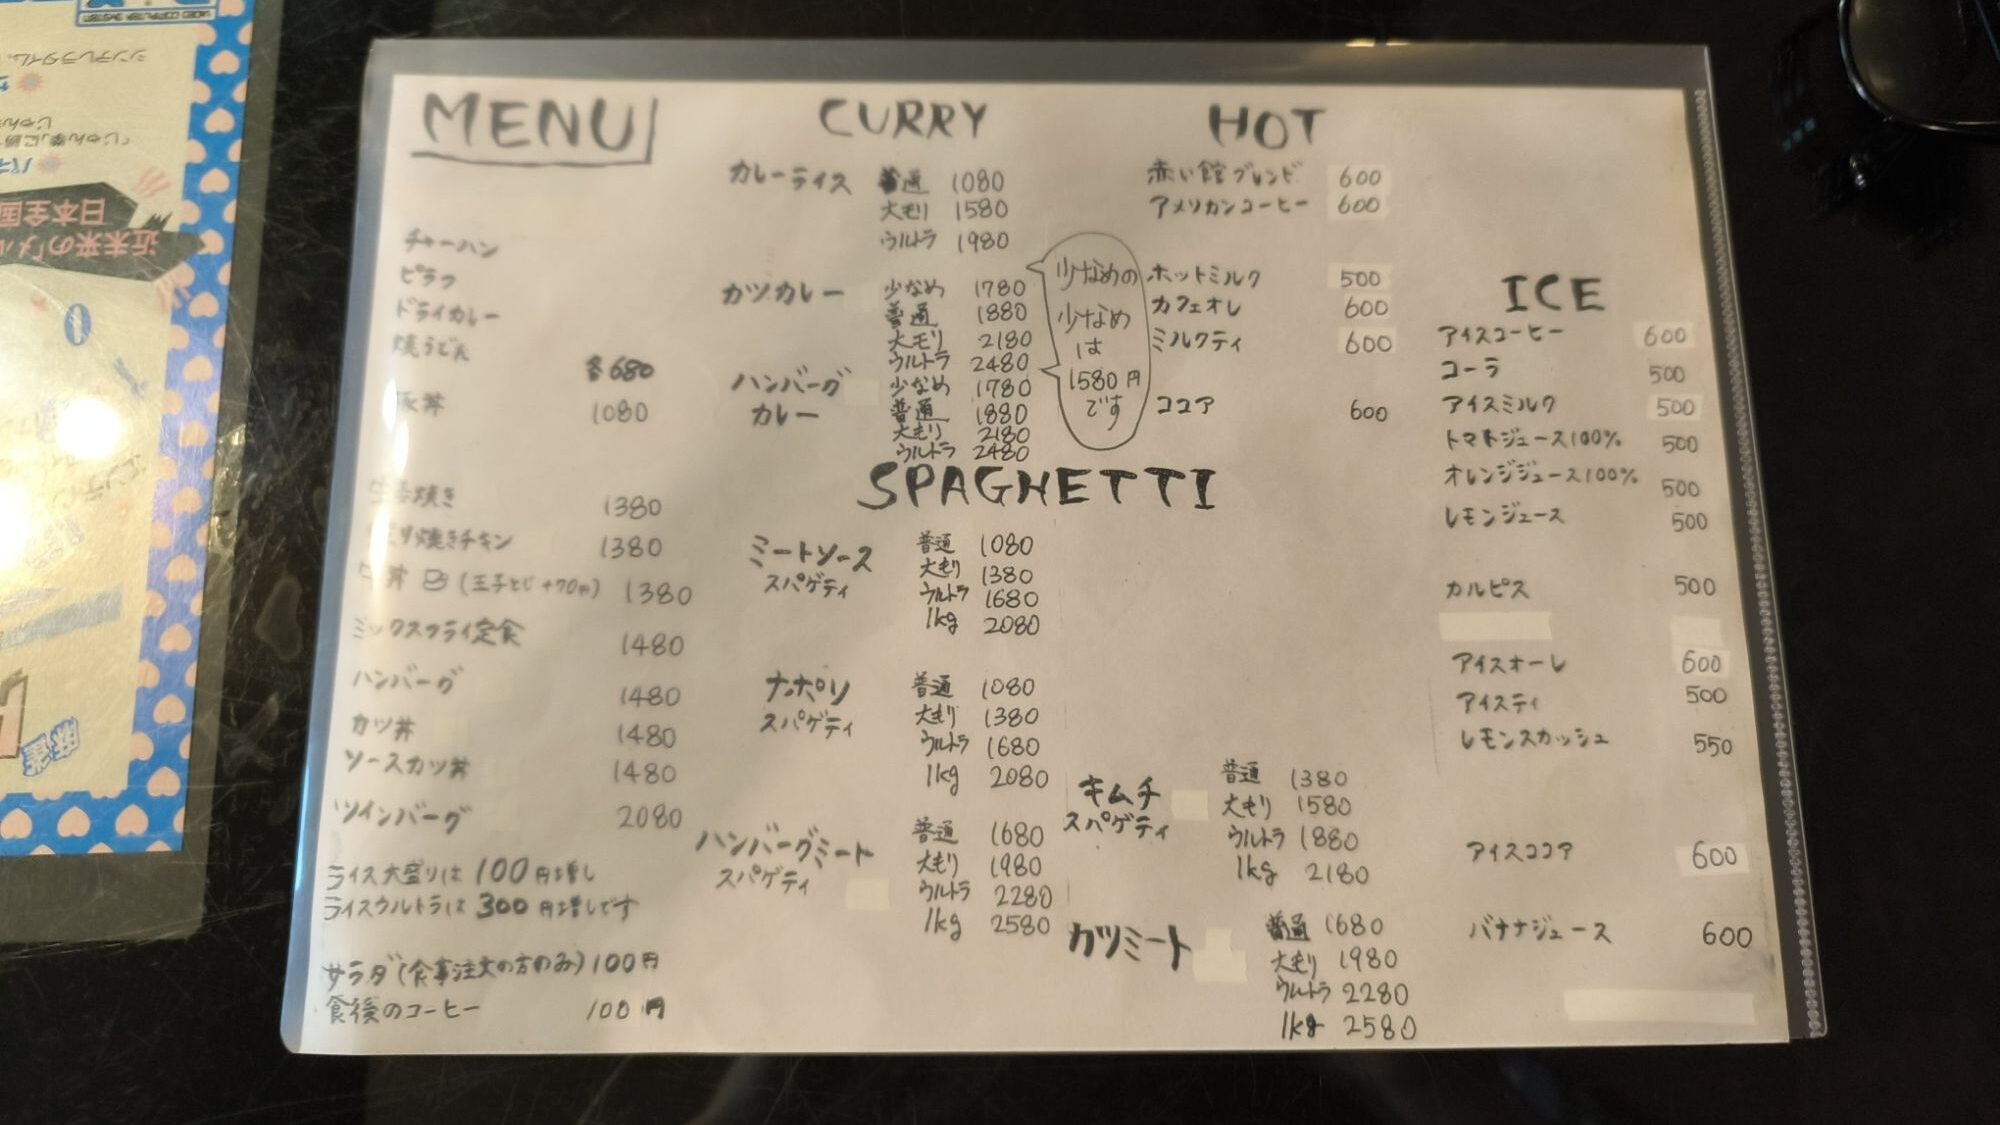 MENU
チャーハン
ピラフ
ドライカレー
焼うどん
各680
豚丼 1080
生姜焼き 1380
照り焼きチキン 1380
牛丼 (玉子とじ +70円) 1380
ミックスフライ定食 1480
ハンバーグ 1480
カツ丼 1480
ソースカツ丼 1480
ツインバーグ 2080
ライス大盛りは 100円増し
ライスウルトラは 300円増しです
サラダ(食事注文の方のみ) 100円
食後のコーヒー 100円
CURRY
カレーライス 普通 1080
大モリ 1580
ウルトラ 1980
カツカレー 少なめ 1780
普通 1880
大モリ 2180
ウルトラ 2480
ハンバーグ
カレー
少なめ 1780
普通 1880
大もり 2180
ウルトラ 2480
少なめの
少なめ
は
1580円
です
SPAGHETTI
ミートソース
スパゲティ
普通 1080
大もり 1380
ウルトラ 1680
1kg 2080
ナポリ
スパゲティ
普通 1080
大もり 1380
ウルトラ 1680
1kg 2080
ハンバーグミート
スパゲティ
普通 1680
大もり 1980
ウルトラ 2280
1kg 2580
キムチ
スパゲティ
普通 1380
大もり 1580
ウルトラ 1880
1kg 2180
カツミート
普通 1680
大もり 1980
ウルトラ 2280
1kg 2580
HOT
赤い館ブレンド 600
アメリカンコーヒー 600
ホットミルク 500
カフェオレ 600
ミルクティ 600
ココア 600
ICE
アイスコーヒー 600
コーラ 500
アイスミルク 500
トマトジュース100% 500
オレンジジュース100% 500
レモンジュース 500
カルピス 500
アイスオーレ 600
アイスティ 500
レモンスカッシュ 550
アイスココア 600
バナナジュース 600
シンデレラタイム
近未来の「メル
日本全国